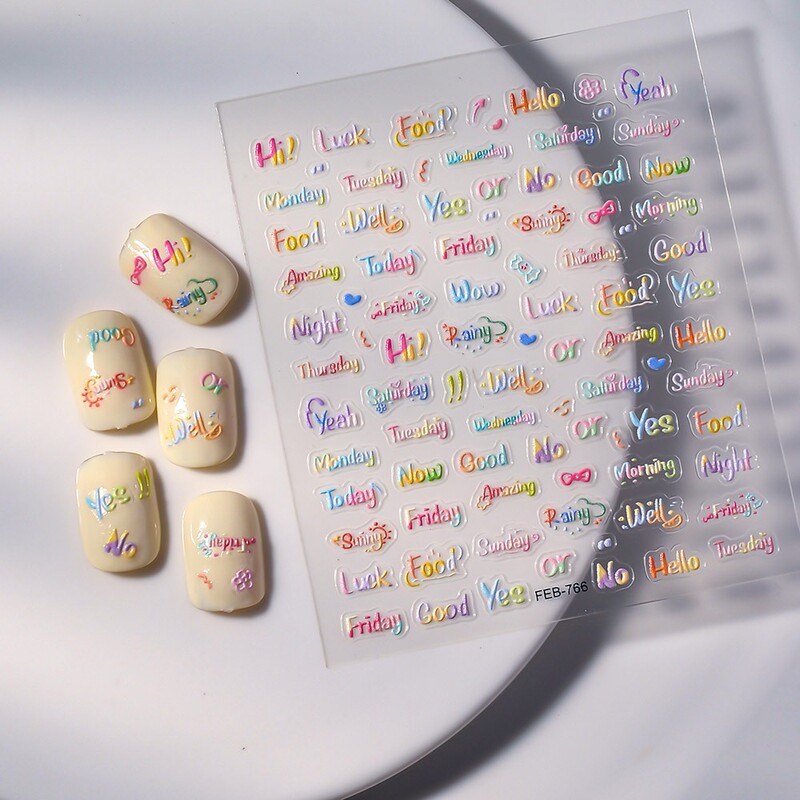 Hi! Luck Food Hello Yeah
Wednesday Saturday Sunday
Monday Tuesday Or No Good Now
Food Well Yes Sunny Morning
Amazing Today Friday Thursday Good
Night Friday Wow Luck Food Yes
Thursday Hi! Rainy Or Amazing Hello
Yeah Saturday !! Well Saturday Sunday
Tuesday Wednesday Or Yes Food
Monday Now Good No Morning Night
Today Friday Amazing Rainy Well Friday
Sunny Sunday
Luck Food Or No Hello Tuesday
Friday Good Yes FEB-766
Hi!
Rainy
Good
Sunny
Or
Well
Yes !!
No
Friday